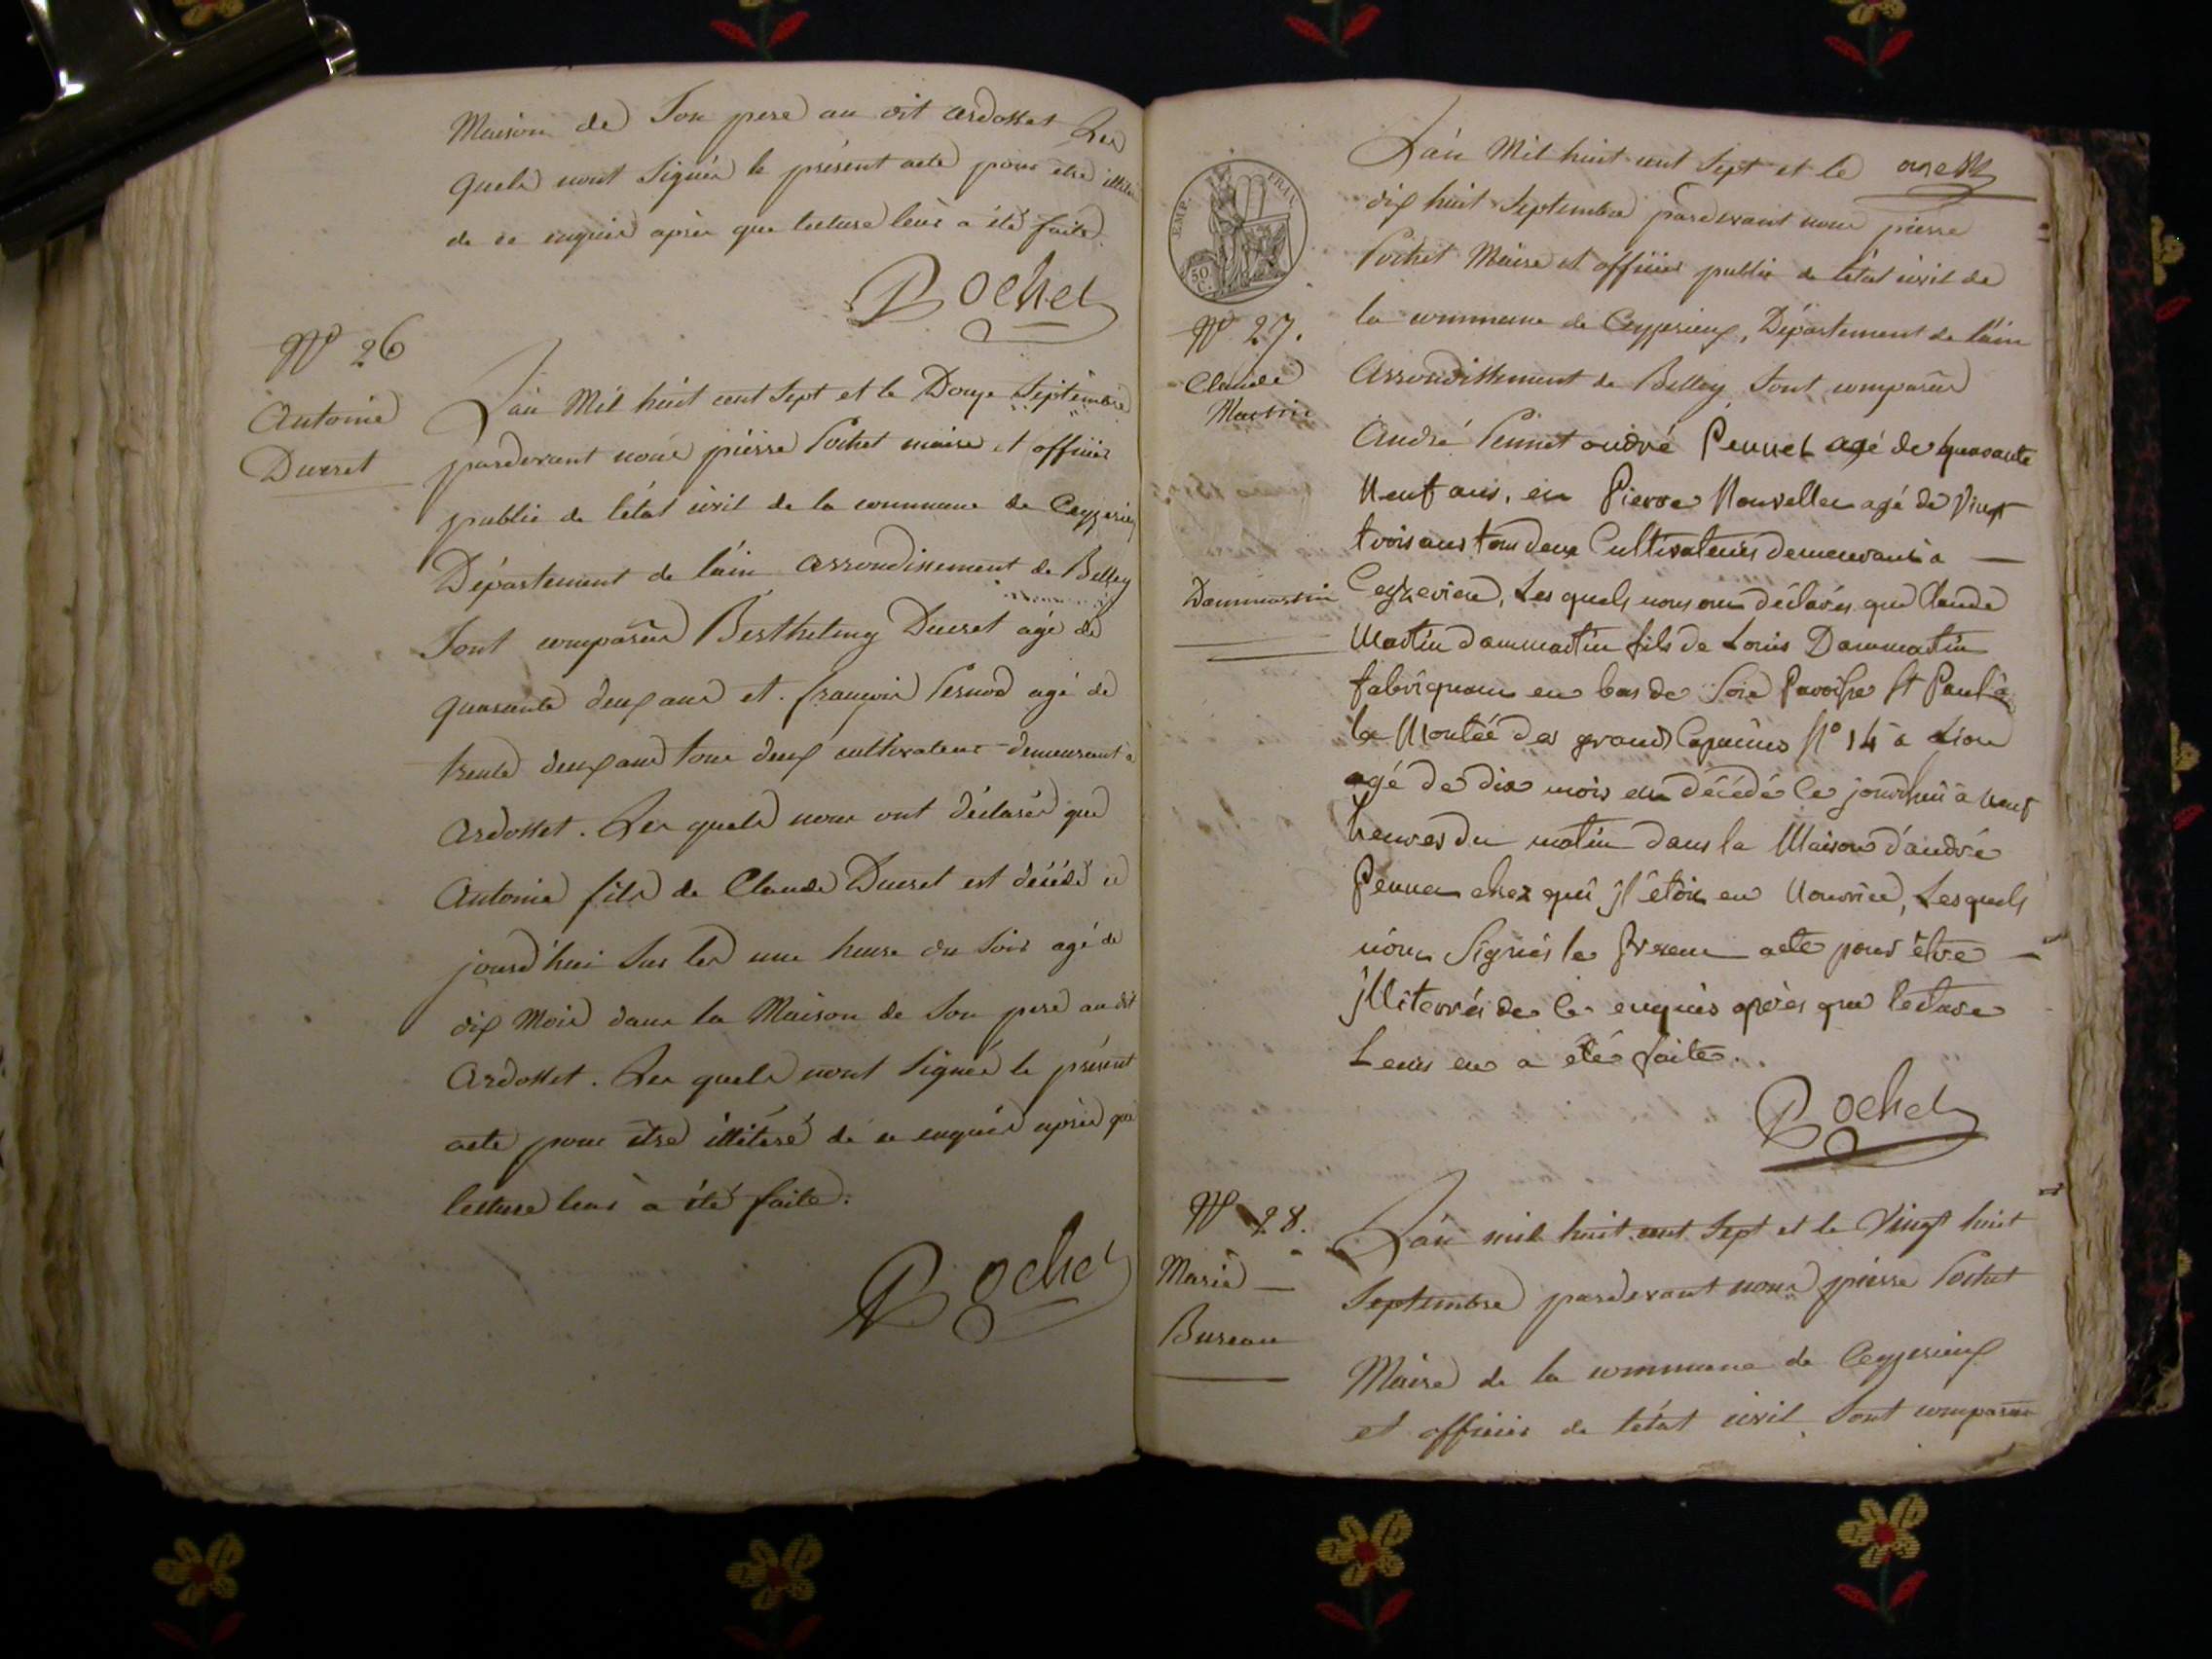 Maison de Son pere au dit ardosset Les
quels nont Signés le présent acte pour etre illité
de ce enquis après que lecture leur a été faite.
Pochet
N° 26
Antoine
Ducret
L'an Mil huit cent Sept et le Douze Septembre
pardevant nous pierre Pochet maire et officier
public de l'état civil de la commune de Ceyzerieu
Département de l'ain arrondissement de Belley
Sont comparus Berthelemy Ducret agé de
quarante deux ans et françois Pernod agé de
trente deux ans tous deux cultivateurs demeurant a
ardosset. Les quels nous ont déclarés que
Antoine fils de Claude Ducret est décédé ce
jourd'hui Sur les une heure du Soir agé de
dix Mois dans la Maison de Son pere au dit
Ardosset. Les quels nont Signés le présent
acte pour etre illiteré de ce enquis après que
lecture leur a été faite.
Pochet
EMP. FRAN.
50 C.
N° 27.
Claude
Martin
Dammartin
L'an Mil huit cent Sept et le
dix huit Septembre pardevant nous pierre
Pochet Maire et officier public de l'état civil de
la commune de Ceyzerieux, Département de l'ain
Arrondissement de Belley Sont comparus
André Pennet andré Pennet agé de quarante
Neuf ans, et Pierre Nouvelle agé de Vingt
trois ans tous deux Cultivateurs demeurants a
Ceyzerieu, Les quels nous ont déclarés que Claude
Martin dammartin fils de Louis Dammartin
fabriquant en bas de Soie Paroisse St Paul a
la Montée des grands Capucins N° 14 a Lion
agé de dix mois est décédé ce jourdhui à neuf
heures du matin dans la Maison d'andré
Pennet chez qui il étoit en Nourice, Les quels
nont Signés le present acte pour être
illiterrés de ce enquis après que lecture
Leurs en a été faite.
Pochet
N° 28.
Marie
Bureau
L'an mil huit cent Sept et le Vingt huit
Septembre pardevant nous pierre Pochet
Maire de la commune de Ceyzerieux
et officier de l'état civil, Sont comparus